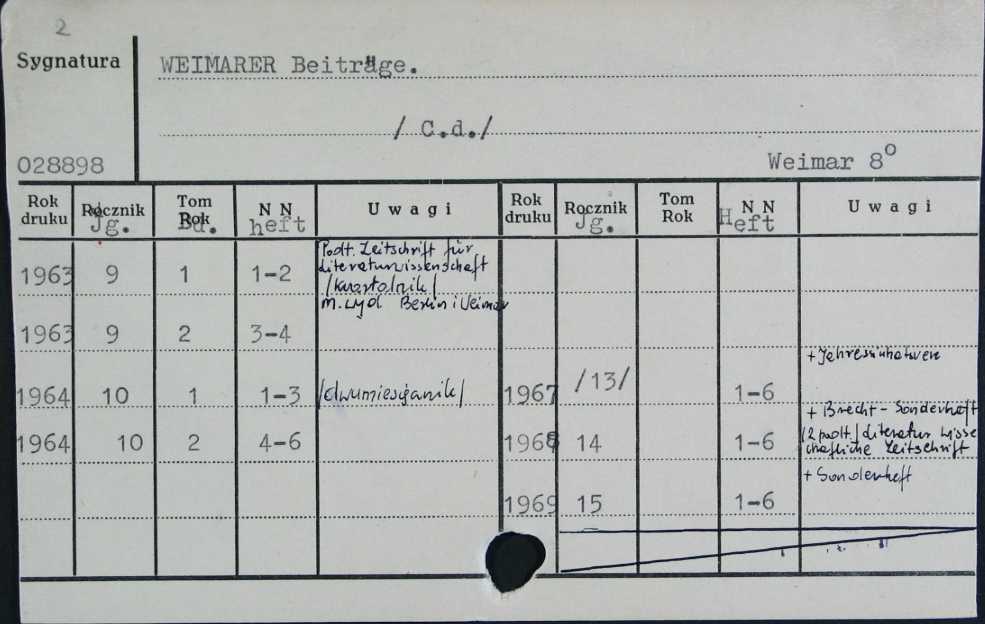 2
Sygnatura
WEIMARER Beiträge.
/ C.d./
028898
Weimar 8º
Rok druku Rocznik Jg. Tom Rok Bd. N N heft Uwagi
Rok druku Rocznik Jg. Tom Rok N N Heft Uwagi
1963 9 1 1-2 Podt. Zeitschrift für
Literaturwissenschaft
/kwartalnik/
m. wyd Berlin i Weimar
1963 9 2 3-4
1964 10 1 1-3 /dwumiesięcznik/
1964 10 2 4-6
1967 /13/ 1-6 +
1968 14 1-6 + Brecht-Sonderheft
/z podt./ Literatur wisse
chafliche Zeitschrift
1969 15 1-6 + Sonderheft